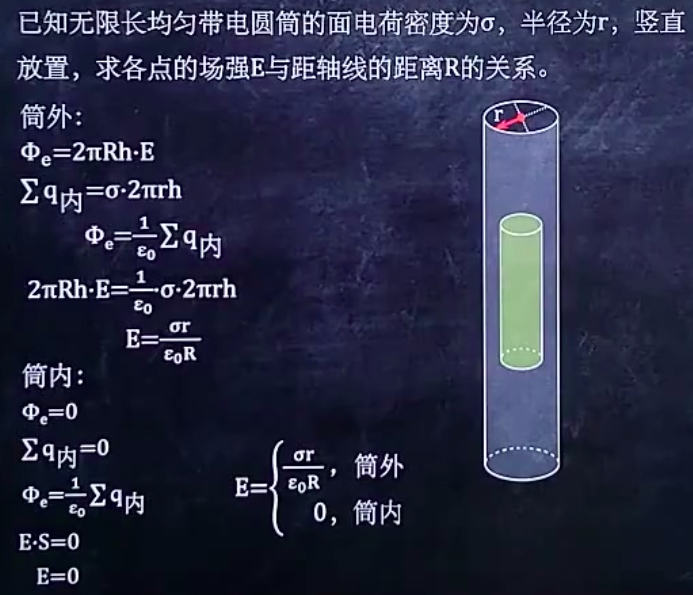 已知无限长均匀带电圆筒的面电荷密度为σ，半径为r，竖直
放置，求各点的场强E与距轴线的距离R的关系。
筒外：
Φₑ=2πRh·E
∑q内=σ·2πrh
Φₑ=1/ε₀ ∑q内
2πRh·E=1/ε₀·σ·2πrh
E=σr/ε₀R
筒内：
Φₑ=0
∑q内=0
Φₑ=1/ε₀ ∑q内
E·S=0
E=0
E={σr/ε₀R，筒外
0，筒内
r